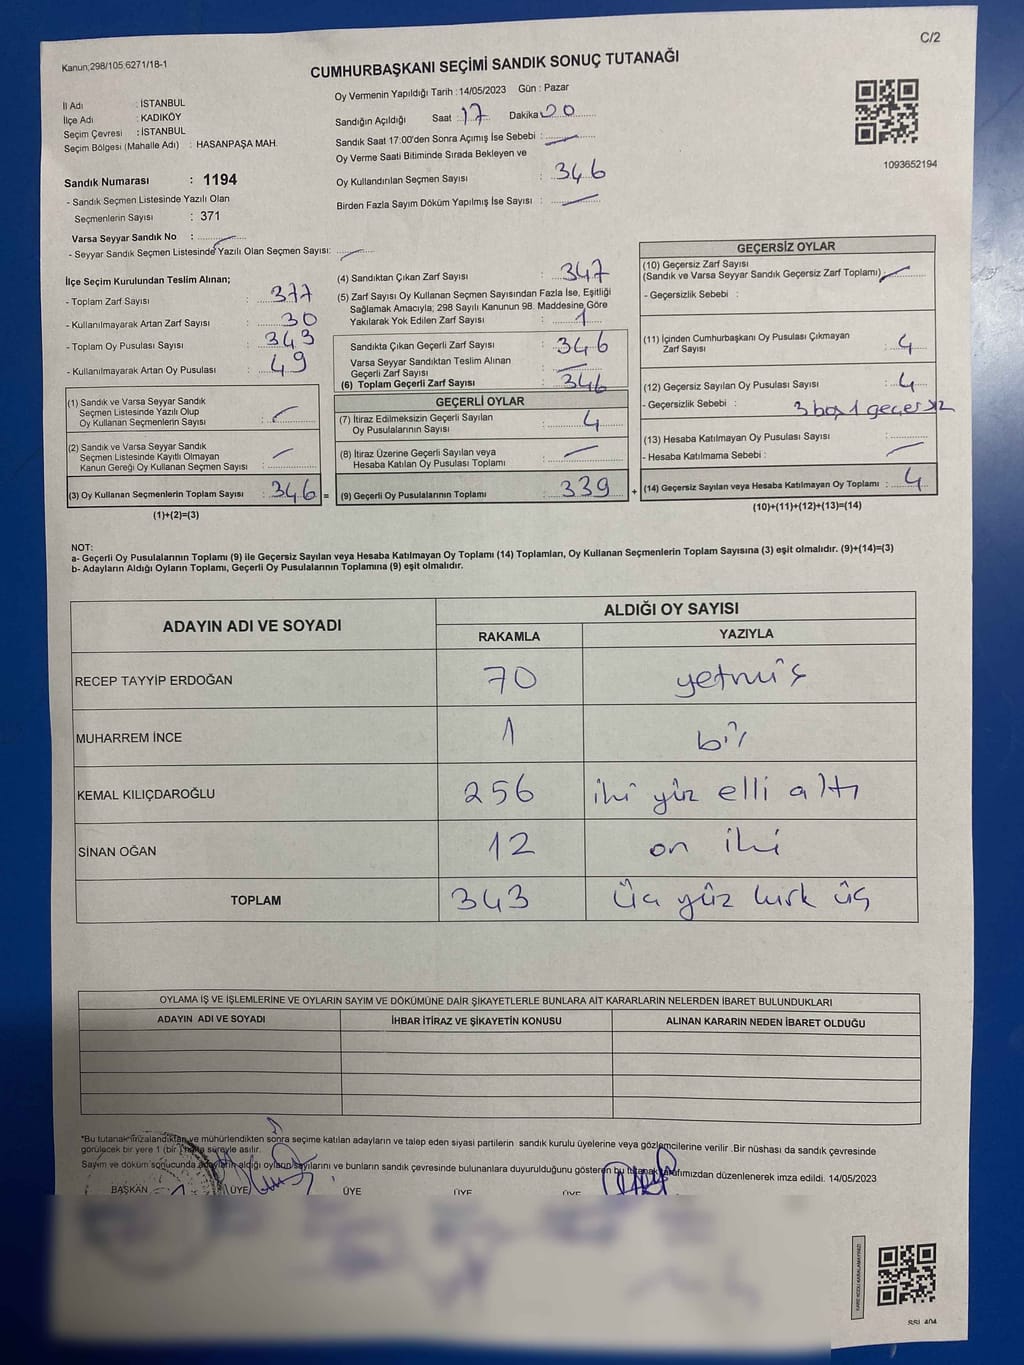 C/2
Kanun;298/105;6271/18-1
CUMHURBAŞKANI SEÇİMİ SANDIK SONUÇ TUTANAĞI
İl Adı : İSTANBUL
İlçe Adı : KADIKÖY
Seçim Çevresi : İSTANBUL
Seçim Bölgesi (Mahalle Adı) : HASANPAŞA MAH.
Sandık Numarası : 1194
- Sandık Seçmen Listesinde Yazılı Olan
Seçmenlerin Sayısı : 371
Varsa Seyyar Sandık No :
- Seyyar Sandık Seçmen Listesinde Yazılı Olan Seçmen Sayısı:
Oy Vermenin Yapıldığı Tarih : 14/05/2023 Gün : Pazar
Sandığın Açıldığı Saat : 17 Dakika 00
Sandık Saat 17:00'den Sonra Açımış İse Sebebi :
Oy Verme Saati Bitiminde Sırada Bekleyen ve
Oy Kullandırılan Seçmen Sayısı : 346
Birden Fazla Sayım Döküm Yapılmış İse Sayısı :
1093652194
İlçe Seçim Kurulundan Teslim Alınan;
- Toplam Zarf Sayısı : 377
- Kullanılmayarak Artan Zarf Sayısı : 30
- Toplam Oy Pusulası Sayısı : 343
- Kullanılmayarak Artan Oy Pusulası : 49
(1) Sandık ve Varsa Seyyar Sandık
Seçmen Listesinde Yazılı Olup
Oy Kullanan Seçmenlerin Sayısı :
(2) Sandık ve Varsa Seyyar Sandık
Seçmen Listesinde Kayıtlı Olmayan
Kanun Gereği Oy Kullanan Seçmen Sayısı :
(3) Oy Kullanan Seçmenlerin Toplam Sayısı : 346 =
(1)+(2)=(3)
(4) Sandıktan Çıkan Zarf Sayısı : 347
(5) Zarf Sayısı Oy Kullanan Seçmen Sayısından Fazla İse, Eşitliği
Sağlamak Amacıyla; 298 Sayılı Kanunun 98. Maddesine Göre
Yakılarak Yok Edilen Zarf Sayısı : 1
Sandıkta Çıkan Geçerli Zarf Sayısı : 346
Varsa Seyyar Sandıktan Teslim Alınan
Geçerli Zarf Sayısı :
(6) Toplam Geçerli Zarf Sayısı : 346
GEÇERLİ OYLAR
(7) İtiraz Edilmeksizin Geçerli Sayılan
Oy Pusulalarının Sayısı : 4
(8) İtiraz Üzerine Geçerli Sayılan veya
Hesaba Katılan Oy Pusulası Toplamı :
(9) Geçerli Oy Pusulalarının Toplamı : 339 +
GEÇERSİZ OYLAR
(10) Geçersiz Zarf Sayısı
(Sandık ve Varsa Seyyar Sandık Geçersiz Zarf Toplamı) :
- Geçersizlik Sebebi :
(11) İçinden Cumhurbaşkanı Oy Pusulası Çıkmayan
Zarf Sayısı : 4
(12) Geçersiz Sayılan Oy Pusulası Sayısı : 4
- Geçersizlik Sebebi : 3 boş 1 geçersiz
(13) Hesaba Katılmayan Oy Pusulası Sayısı :
- Hesaba Katılmama Sebebi :
(14) Geçersiz Sayılan veya Hesaba Katılmayan Oy Toplamı : 4
(10)+(11)+(12)+(13)=(14)
NOT:
a- Geçerli Oy Pusulalarının Toplamı (9) ile Geçersiz Sayılan veya Hesaba Katılmayan Oy Toplamı (14) Toplamları, Oy Kullanan Seçmenlerin Toplam Sayısına (3) eşit olmalıdır. (9)+(14)=(3)
b- Adayların Aldığı Oyların Toplamı, Geçerli Oy Pusulalarının Toplamına (9) eşit olmalıdır.
ADAYIN ADI VE SOYADI ALDIĞI OY SAYISI
RAKAMLA YAZIYLA
RECEP TAYYİP ERDOĞAN 70 yetmiş
MUHARREM İNCE 1 bir
KEMAL KILIÇDAROĞLU 256 iki yüz elli altı
SİNAN OĞAN 12 on iki
TOPLAM 343 Üç yüz kırk üç
OYLAMA İŞ VE İŞLEMLERİNE VE OYLARIN SAYIM VE DÖKÜMÜNE DAİR ŞİKAYETLERLE BUNLARA AİT KARARLARIN NELERDEN İBARET BULUNDUKLARI
ADAYIN ADI VE SOYADI İHBAR İTİRAZ VE ŞİKAYETİN KONUSU ALINAN KARARIN NEDEN İBARET OLDUĞU
*Bu tutanak imzalandıktan ve mühürlendikten sonra seçime katılan adayların ve talep eden siyasi partilerin sandık kurulu üyelerine veya gözlemcilerine verilir .Bir nüshası da sandık çevresinde
görülecek bir yere 1 (bir ) hafta süreyle asılır.
Sayım ve döküm sonucunda adayların aldığı oyların sayılarını ve bunların sandık çevresinde bulunanlara duyurulduğunu gösteren bu tutanak tarafımızdan düzenlenerek imza edildi. 14/05/2023
BAŞKAN ÜYE ÜYE ÜYE ÜYE